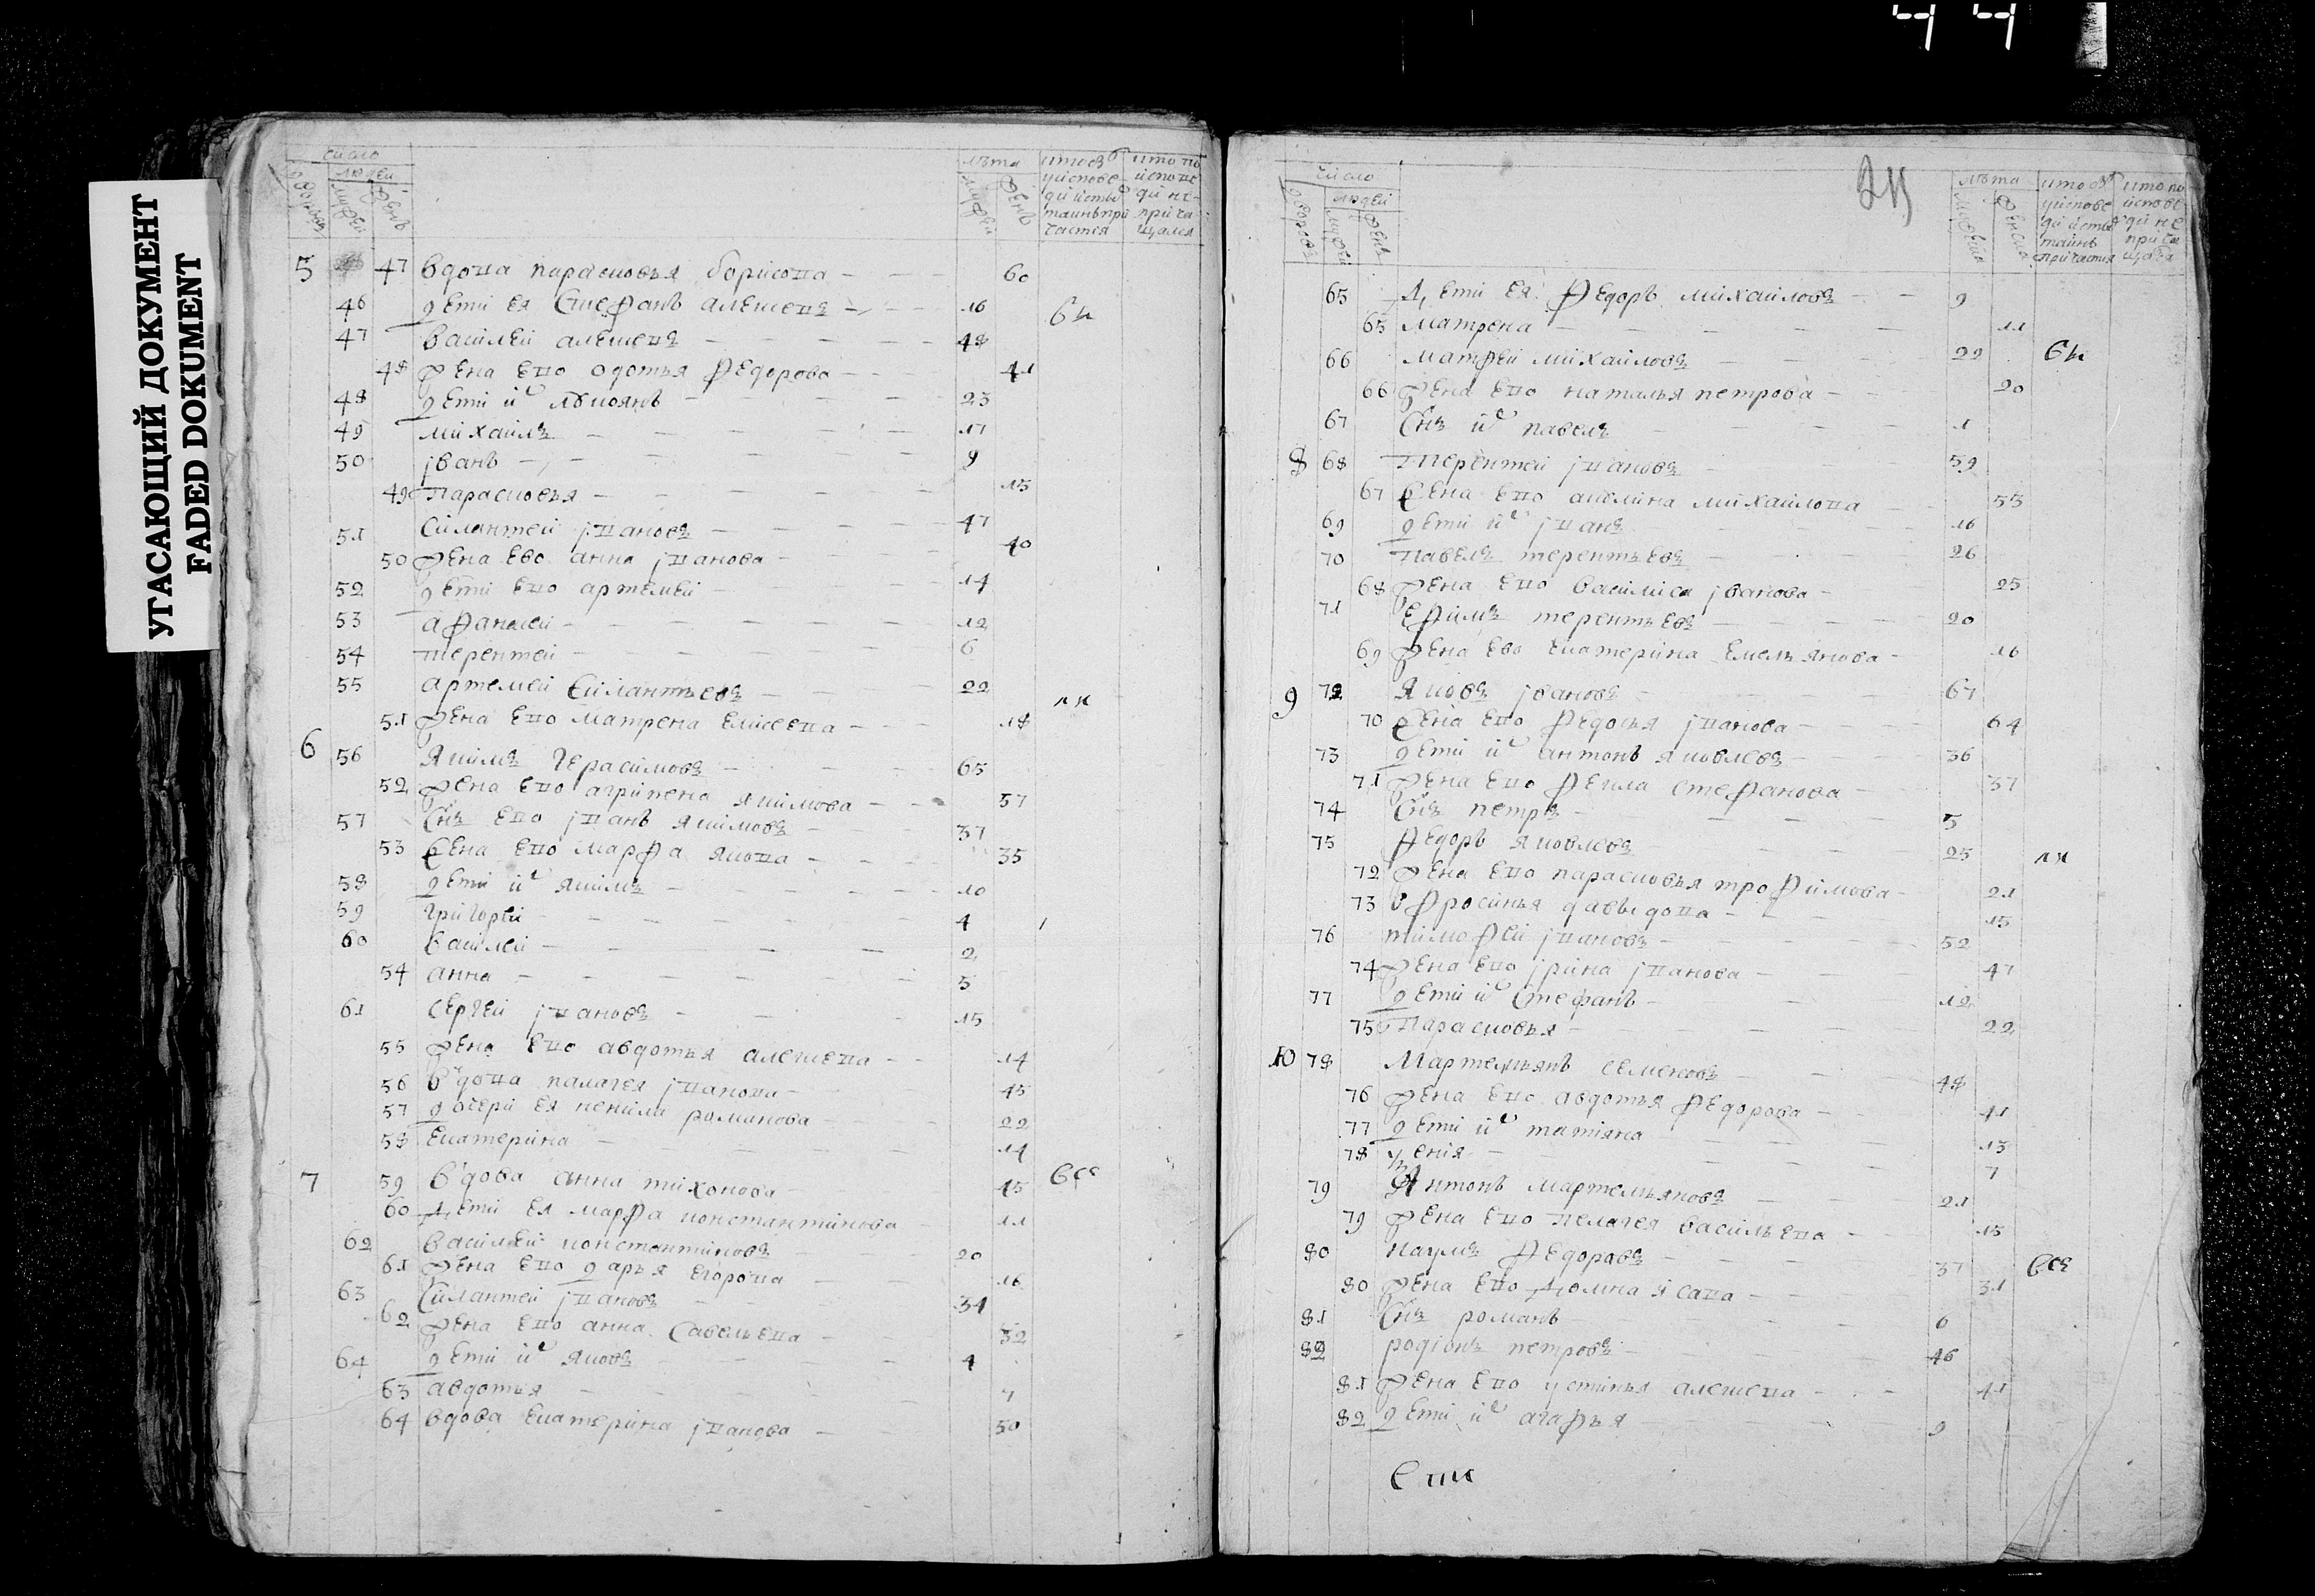 УГАСАЮЩИЙ ДОКУМЕНТ
FADED DOKUMENT
число
людей
лѣта
5 47 вдова парасковья борисова 60
46 дети ея Стефанъ алексевъ 16
47 василей алексевъ 48
48 жена ево одотья федорова 41
48 дети их 23
49 михаилъ 17
50 јванъ 9
49 парасковья 15
51 Силантей јвановъ 47
50 жена ево анна јванова 40
52 дети ево артемей 14
53 афанасей 12
54 терентей 6
55 артемей Силантьевъ 22
51 жена ево матрена елисеева 18
6 56 якимъ герасимовъ 65
52 жена ево агрипена якимова 57
57 Снъ ево јванъ якимовъ 37
53 жена ево марфа якова 35
58 дети их якимъ 10
59 григорей 4
60 василей 2
54 анна 5
61 сергей јвановъ 15
55 жена ево авдотья алексева 14
56 вдова палагея јванова 45
57 дочери ея ненила романова 22
58 екатерина 14
7 59 вдова анна тихонова 45 все
60 дети ея марфа константинова 11
62 василей константиновъ 20
61 жена ево дарья егорова 16
63 Силантей јвановъ 34
62 жена ево анна Савельева 32
64 дети их яковъ 4
63 авдотья 7
64 вдова екатерина јванова 50
число
людей
лѣта
65 Дети ея федоръ михаиловъ 9
65 матрена 11
66 матфей михаиловъ 29
66 жена ево наталья петрова 20
67 Снъ их павелъ 1
8 68 терентей јвановъ 59
67 жена ево акелина михаилова 53
69 дети их јванъ 16
70 павелъ терентьевъ 26
68 жена ево василиса јванова 25
71 ефимъ терентьевъ 20
69 жена ево екатерина емельянова 16
9 72 яковъ јвановъ 67
70 жена ево федосья јванова 64
73 дети их антонъ яковлевъ 36
71 жена ево фекла стефанова 37
74 Снъ петръ 5
75 федоръ яковлевъ 25
72 жена ево парасковья трофимова 21
73 ефросинья давыдова 15
76 тимофей јвановъ 52
74 жена ево јрина јванова 47
77 дети их Стефанъ 12
75 парасковья 22
10 78 Мартемьянъ семеновъ 48
76 жена ево авдотья федорова 41
77 дети их татияна 13
78 7
79 Антонъ мартемьяновъ 21
79 жена ево пелагея васильева 15
80 наумъ федоровъ 37 все
80 жена ево домна Исава 31
81 Снъ романъ 6
82 родіонъ петровъ 46
81 жена ево устинья алексева 41
82 дети их агафья 9